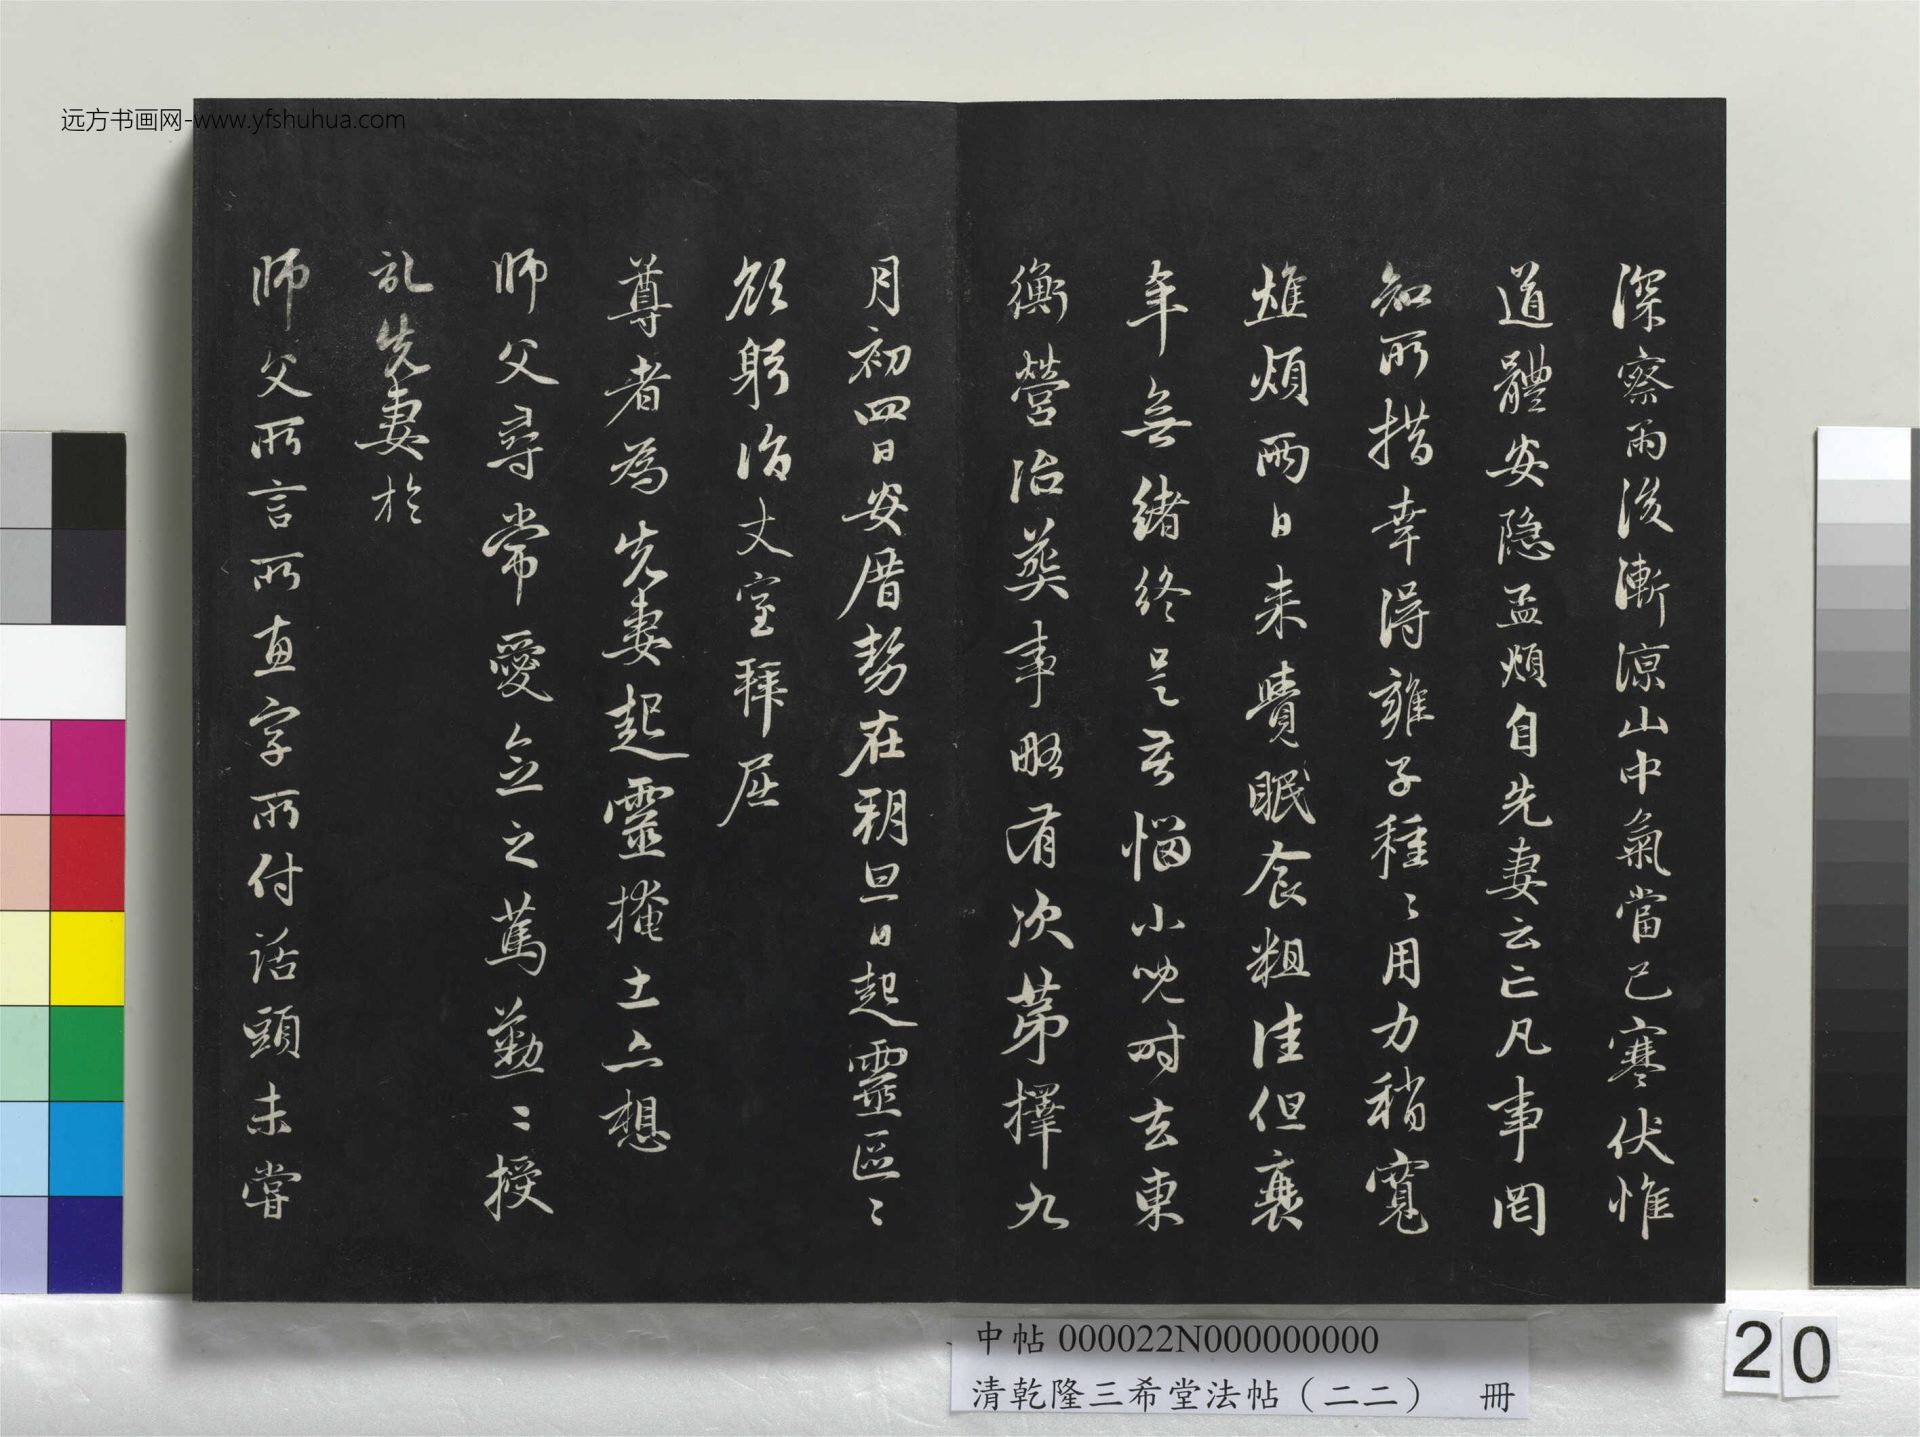 远方书画网-www.yfshuhua.com
深察雨後漸涼山中氣當已寒伏惟
道體安隐孟頫自先妻云亡凡事罔
知所措幸得雍子種〻用力稍寬
燋煩兩日来覺眠食粗佳但衰
年無緒終是苦惱小兒時去東
衡營治葬事略有次苐擇九
月初四日安厝勢在朔旦日起靈區〻
欲躬詣丈室拜屈
尊者為先妻起靈掩土亦想
師父尋常愛念之篤勤〻授
記先妻於
師父所言所惠字所付話頭未嘗
中帖 000022N000000000
清乾隆三希堂法帖（二二） 冊
20